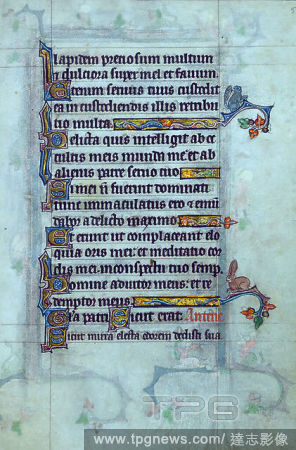 lapidem preciosum multum
et dulciora super mel et favum.
Etenim servus tuus custodit
ea in custodiendis illis retribu
tio multa.
Delicta quis intelligit ab oc
cultis meis munda me: et ab
alienis parce servo tuo
Si mei non fuerint dominati
tunc immaculatus ero et emun
dabor a delicto maximo
Et erunt ut complaceant elo
quia oris mei: et meditatio cor
dis mei in conspectu tuo semp.
Domine adiutor meus: et re
demptor meus.
Gloria patri Sicut erat.
Sicut mirra electa odorem dedisti sua
TPG
www.tpgnews.com/ 達志影像